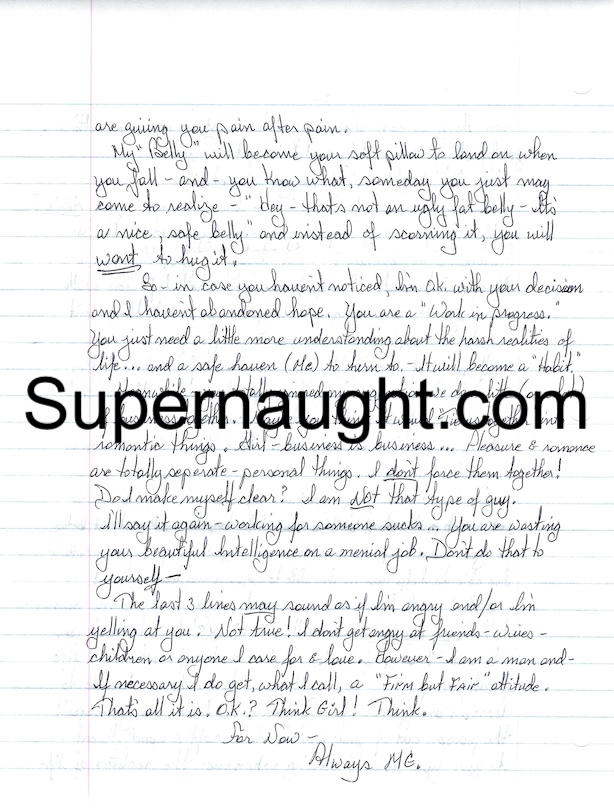 are giving you pain after pain.
My "Belly" will become your soft pillow to land on when
you fall - and - you know what, someday you just may
come to realize - "Hey - thats not an ugly fat belly - It's
a nice, safe belly" and instead of scorning it, you will
want to hug it.
So - in case you haven't noticed, I'm O.K. with your decision
and I haven't abandoned hope. You are a "Work in progress."
You just need a little more understanding about the harsh realities of
life... and a safe haven (Me) to turn to. - It will become a "Habit."
Meanwhile
Supernaught.com
romantic things. Girl - business is business... Pleasure & romance
are totally seperate - personal things. I don't force them together!
Do I make myself clear? I am Not that type of guy.
I'll say it again - working for someone sucks... You are wasting
your beautiful Intelligence on a menial job. Don't do that to
yourself -
The last 3 lines may sound as if I'm angry and/or I'm
yelling at you. Not true! I don't get angry at friends - wives -
children or anyone I care for & love. However - I am a man and -
If necessary I do get, what I call, a "Firm but Fair" attitude.
That's all it is. O.K.? Think Girl! Think.
For Now -
Always ME.